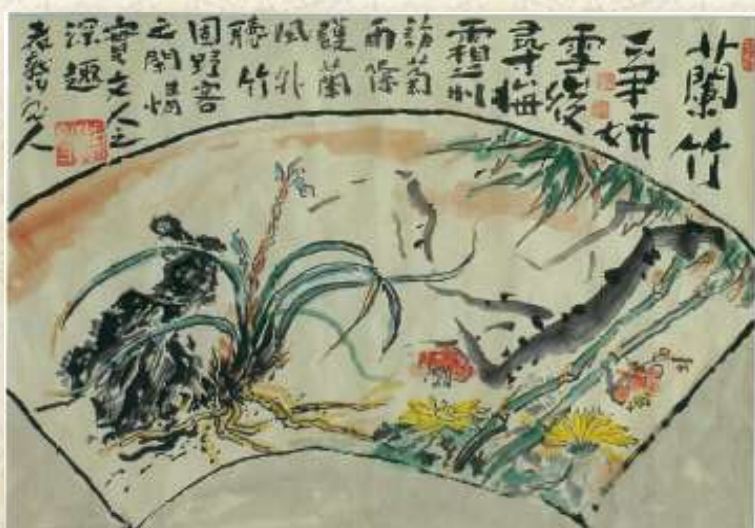 蘭竹
爭妍
雪後
尋梅
霜前
訪菊
雨際
護蘭
風外
聽竹
固野客
之閒情
實文人之
深趣